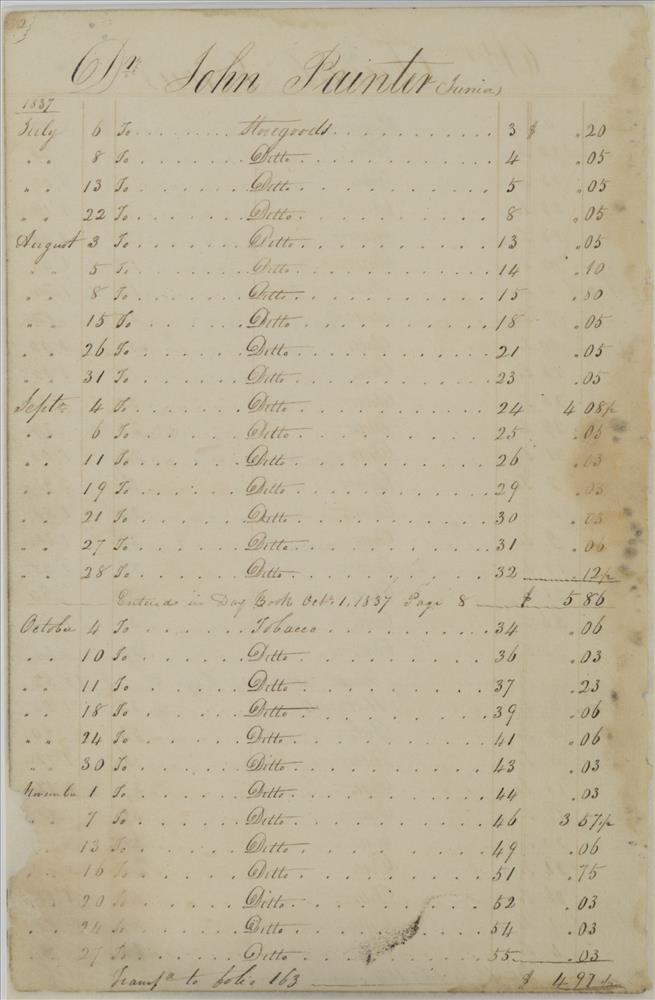 Dr John Painter Junior
1837
July 6 To Storegoods 3 $ .20
" " 8 To Ditto 4 .05
" " 13 To Ditto 5 .05
" " 22 To Ditto 8 .05
August 3 To Ditto 13 .05
" " 5 To Ditto 14 .10
" " 8 To Ditto 15 .80
" " 15 To Ditto 18 .05
" " 26 To Ditto 21 .05
" " 31 To Ditto 23 .05
Septr 4 To Ditto 24 4 08½
" " 6 To Ditto 25 .03
" " 11 To Ditto 26 .03
" " 19 To Ditto 29 .03
" " 21 To Ditto 30 .03
" " 27 To Ditto 31 .06
" " 28 To Ditto 32 .12½
Entered in Day Book Octr 1, 1837 Page 8 $ 5 86
October 4 To Tobacco 34 .06
" " 10 To Ditto 36 .03
" " 11 To Ditto 37 .23
" " 18 To Ditto 39 .06
" " 24 To Ditto 41 .06
" " 30 To Ditto 43 .03
November 1 To Ditto 44 .03
" 7 To Ditto 46 3 57½
" 13 To Ditto 49 .06
" 16 To Ditto 51 .75
" 20 To Ditto 52 .03
" 24 To Ditto 54 .03
" 27 To Ditto 55 .03
Transfd to folio 163 $ 4 97½